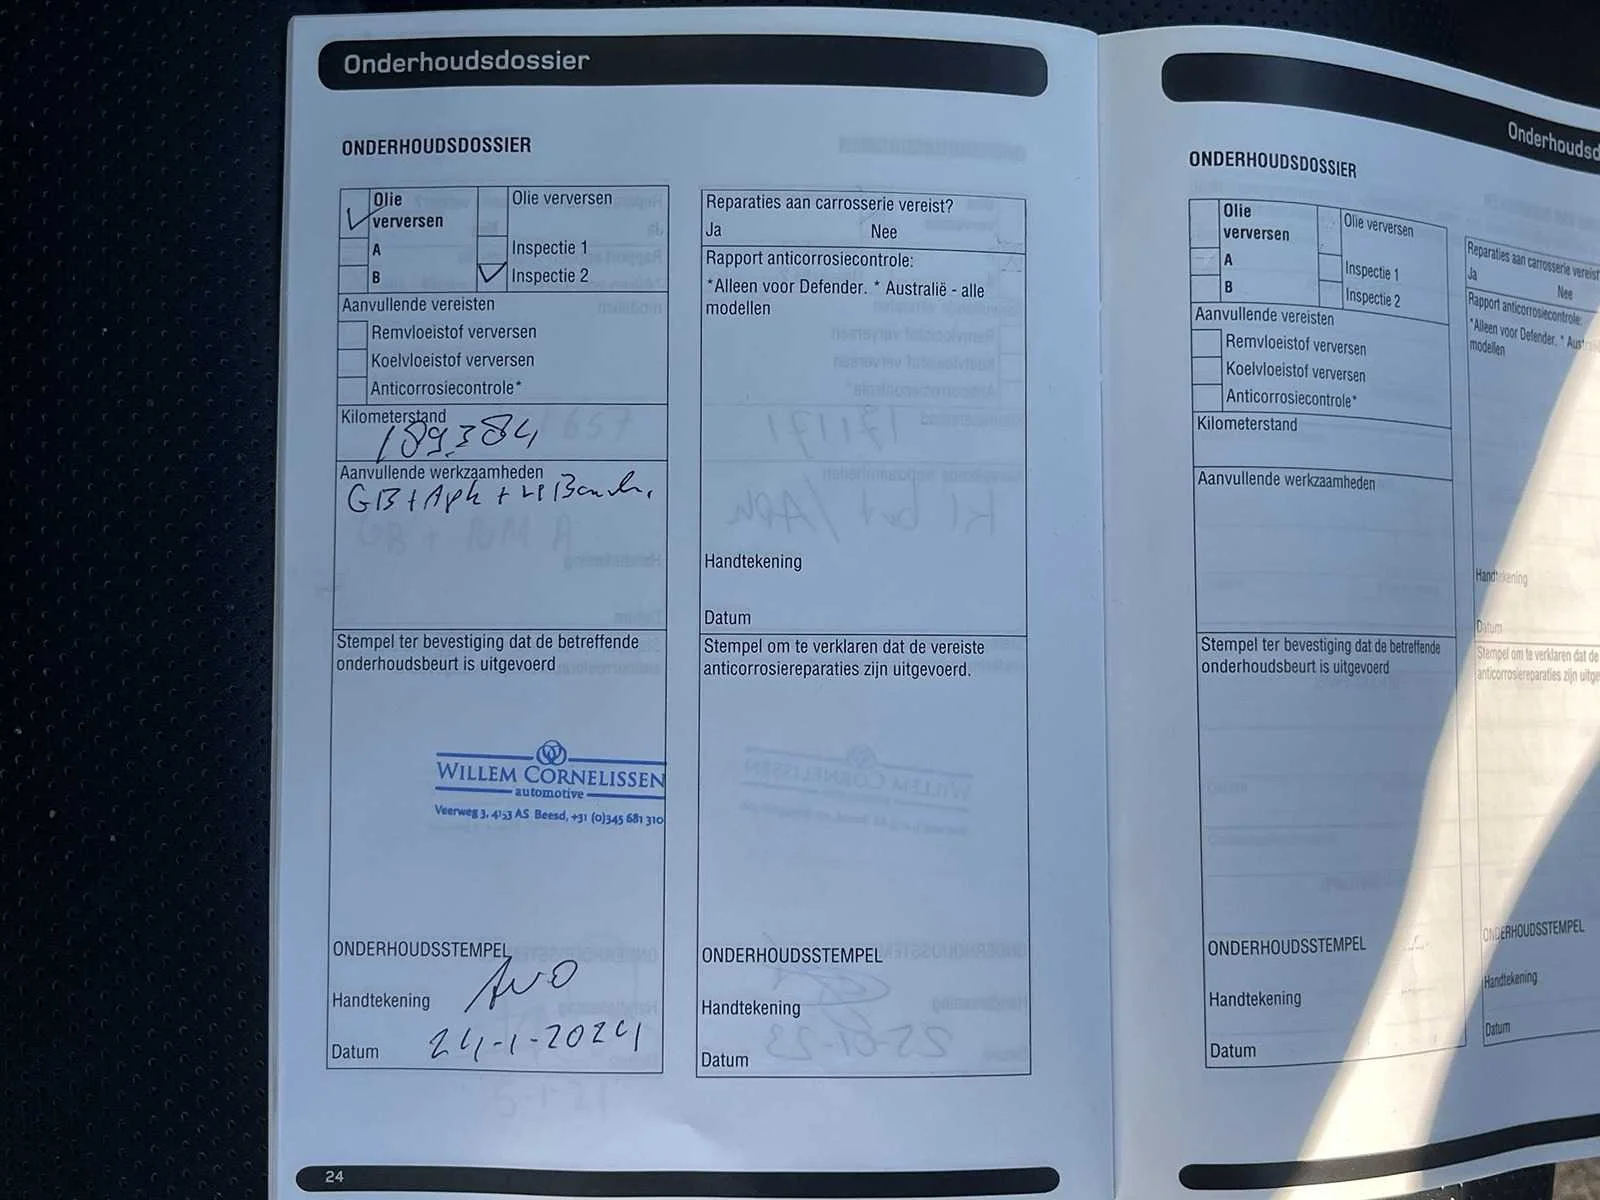 Onderhoudsdossier
ONDERHOUDSDOSSIER
Olie
verversen
Olie verversen
A
Inspectie 1
B
Inspectie 2
Aanvullende vereisten
Remvloeistof verversen
Koelvloeistof verversen
Anticorrosiecontrole*
Kilometerstand
189.384
Aanvullende werkzaamheden
GB + Apk +
Stempel ter bevestiging dat de betreffende
onderhoudsbeurt is uitgevoerd
WILLEM CORNELISSEN
automotive
Veerweg 3, 4153 AS Beesd, +31 (0)345 681 310
ONDERHOUDSSTEMPEL
Handtekening
Datum 24-1-2024
Reparaties aan carrosserie vereist?
Ja Nee
Rapport anticorrosiecontrole:
*Alleen voor Defender. * Australië - alle
modellen
Handtekening
Datum
Stempel om te verklaren dat de vereiste
anticorrosiereparaties zijn uitgevoerd.
ONDERHOUDSSTEMPEL
Handtekening
Datum
24
Onderhoudsd
ONDERHOUDSDOSSIER
Olie
verversen
Olie verversen
A
Inspectie 1
B
Inspectie 2
Aanvullende vereisten
Remvloeistof verversen
Koelvloeistof verversen
Anticorrosiecontrole*
Kilometerstand
Aanvullende werkzaamheden
Stempel ter bevestiging dat de betreffende
onderhoudsbeurt is uitgevoerd
ONDERHOUDSSTEMPEL
Handtekening
Datum
Reparaties aan carrosserie vereist
Ja Nee
Rapport anticorrosiecontrole:
*Alleen voor Defender. * Aus
modellen
Handtekening
Datum
Stempel om te verklaren dat de
anticorrosiereparaties zijn uitge
ONDERHOUDSSTEMPEL
Handtekening
Datum